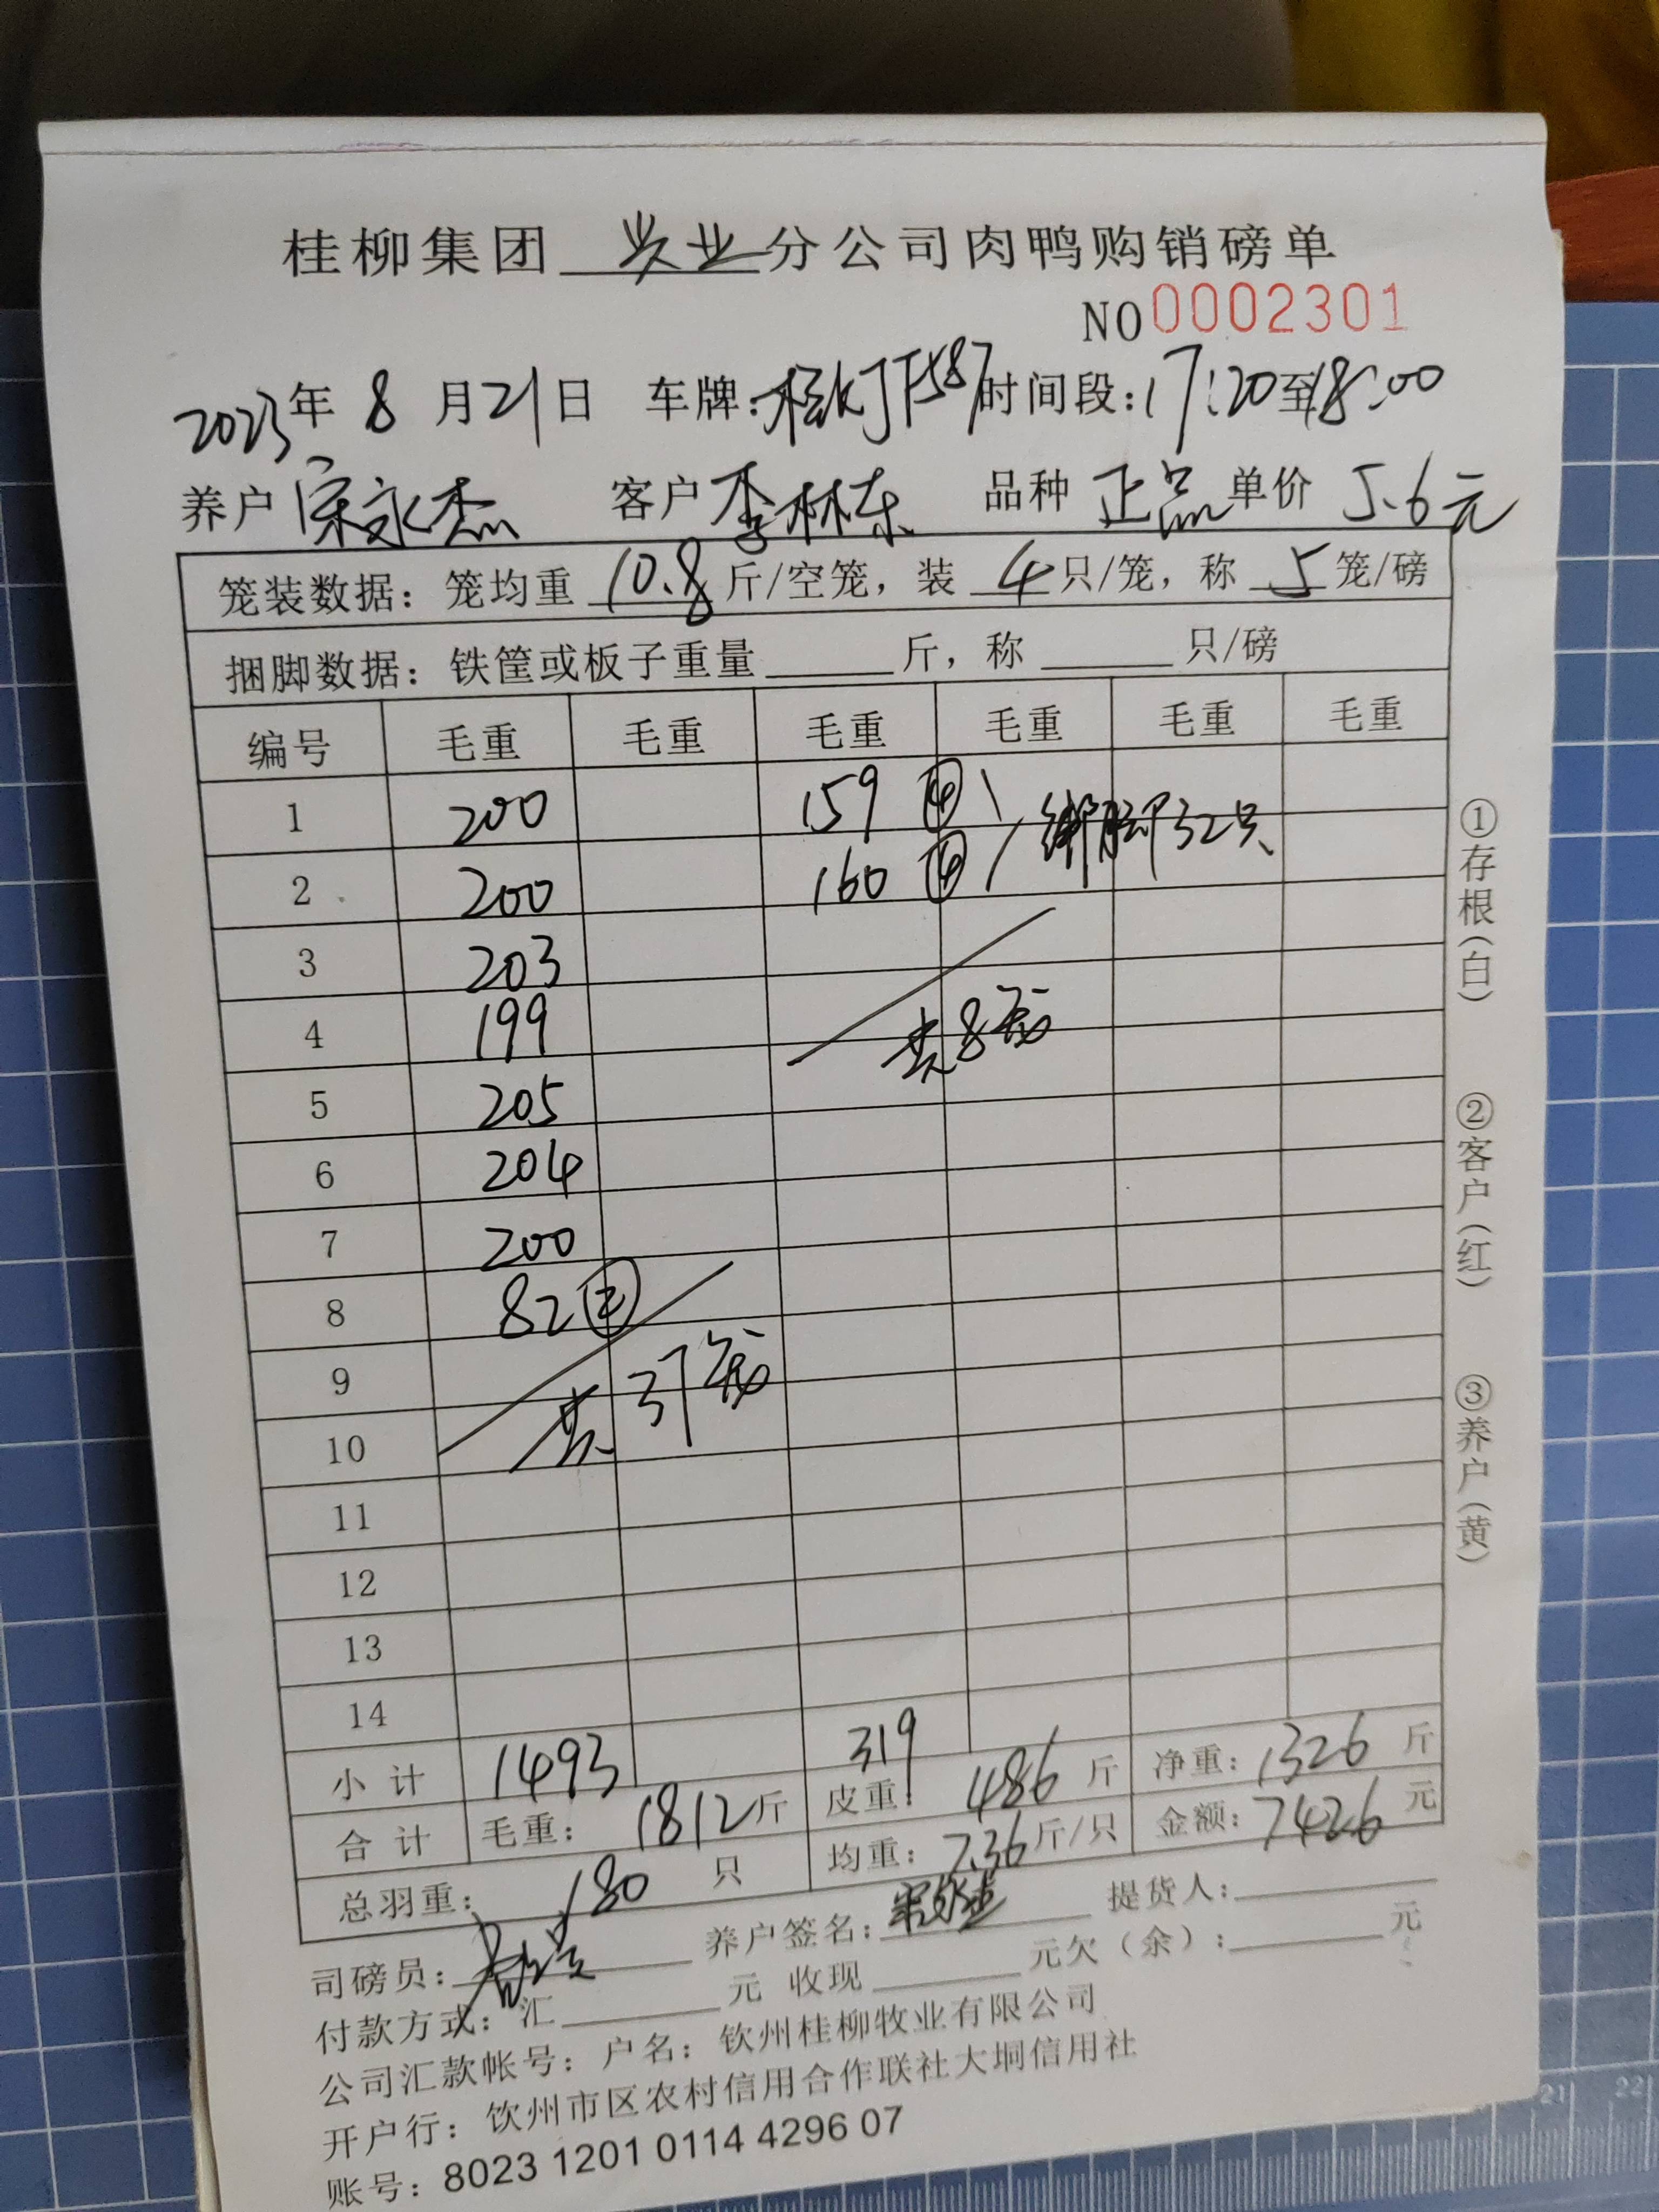 桂柳集团 兴业 分公司肉鸭购销磅单
NO 0002301
2023年 8 月 21 日 车牌: 时间段: 17:20至18:00
养户 宋永杰 客户 李林东 品种 正品 单价 5.6元
笼装数据: 笼均重 10.8 斤/空笼, 装 4 只/笼, 称 5 笼/磅
捆脚数据: 铁筐或板子重量 斤, 称 只/磅
编号 毛重 毛重 毛重 毛重 毛重 毛重
1 200 159 ④ \
2 200 160 ④ / 绑脚32只
3 203
4 199 共8笼
5 205
6 204
7 200
8 82 ②
9 共37笼
10
11
12
13
14
小计 1493 319
合计 毛重: 1812斤 皮重: 486 斤 净重: 1326 斤
总羽重: 180 只 均重: 7.36斤/只 金额: 7426 元
司磅员: 养户签名: 提货人:
付款方式: 汇 元 收现 元欠(余): 元
公司汇款帐号: 户名: 钦州桂柳牧业有限公司
开户行: 钦州市区农村信用合作联社大垌信用社
账号: 8023 1201 0114 4296 07
①存根(白)
②客户(红)
③养户(黄)
21 22